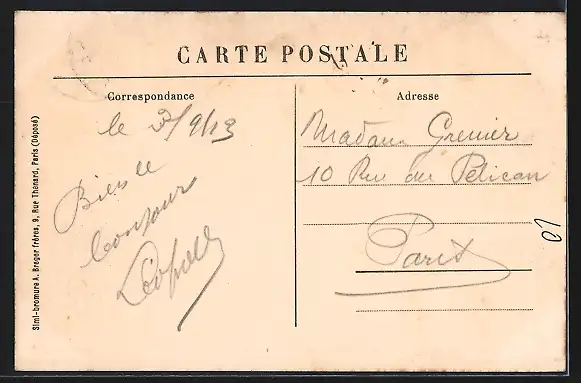 CARTE POSTALE
Correspondance
le 3/9/13
Bien le
bonjour
Léopold
Adresse
Madame Grenier
10 Rue du Pélican
Paris
01
Simi-bromure A. Breger frères, 9, Rue Thénard, Paris (Déposé)